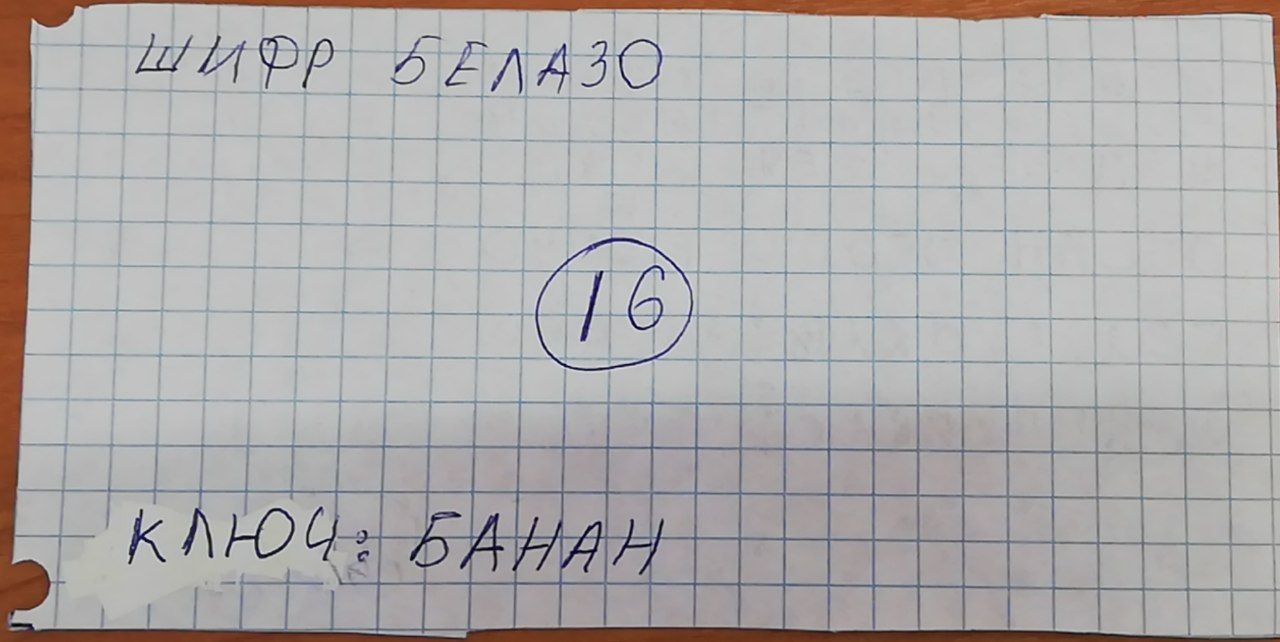 ШИФР БЕЛАЗО
16
КЛЮЧ: БАНАН